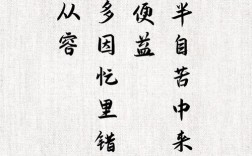 半自苦中来
便益
多因忙里错
从容